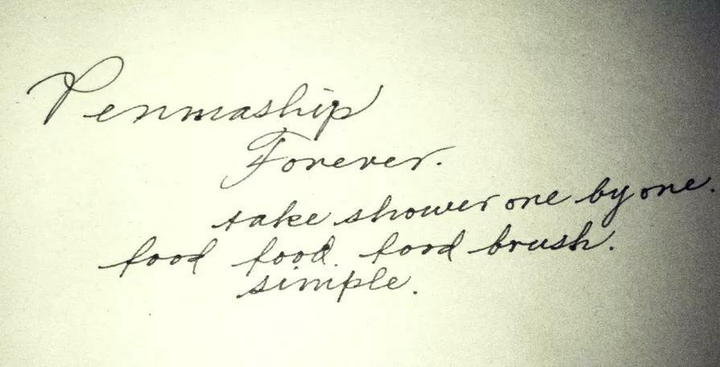 Penmaship
Forever.
take shower one by one.
food food. food brush.
simple.